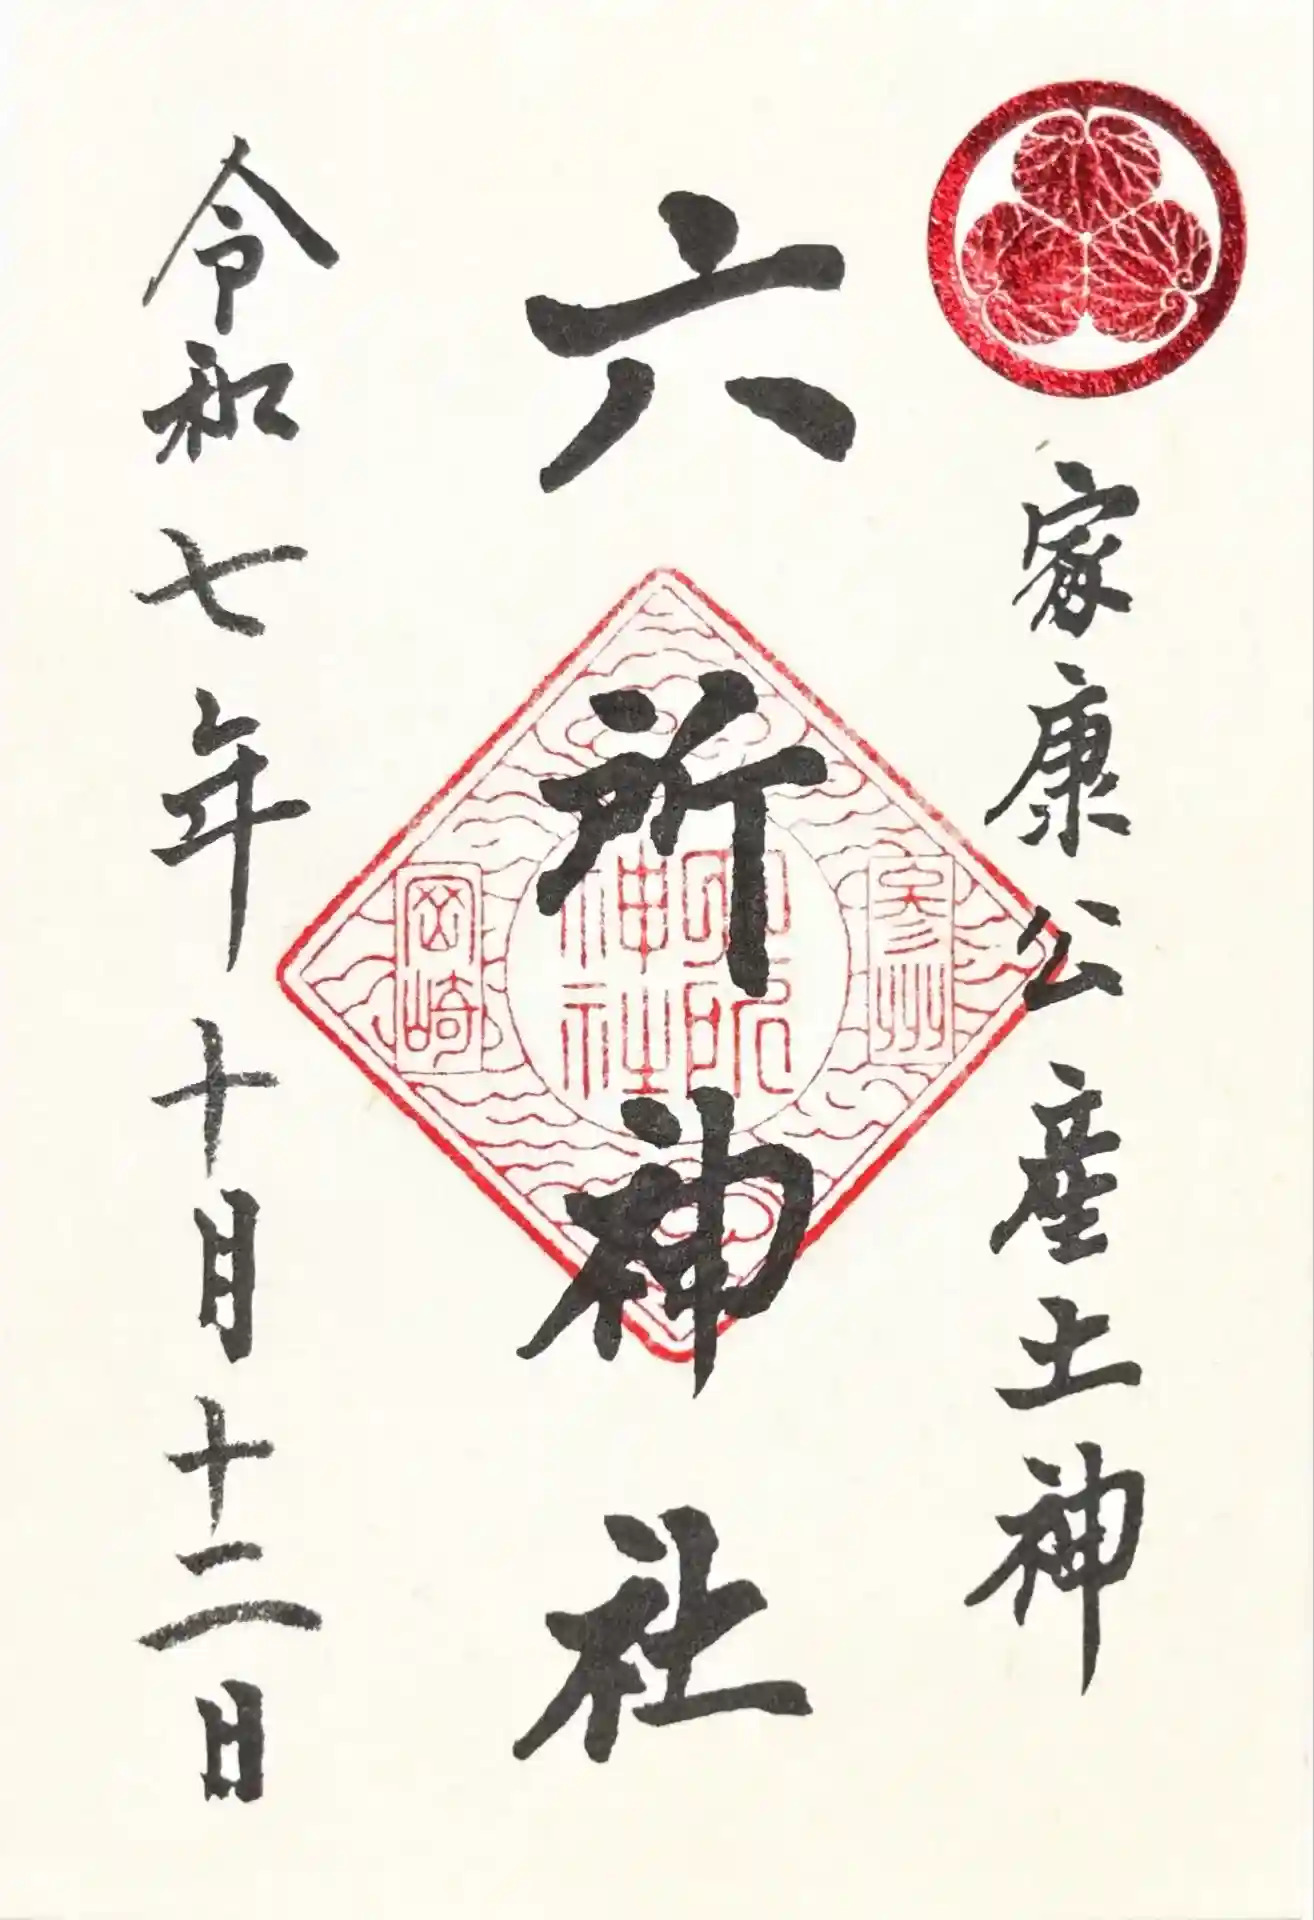 家康公産土神
六所神社
参州
六所
神社
岡崎
令和七年十月十二日